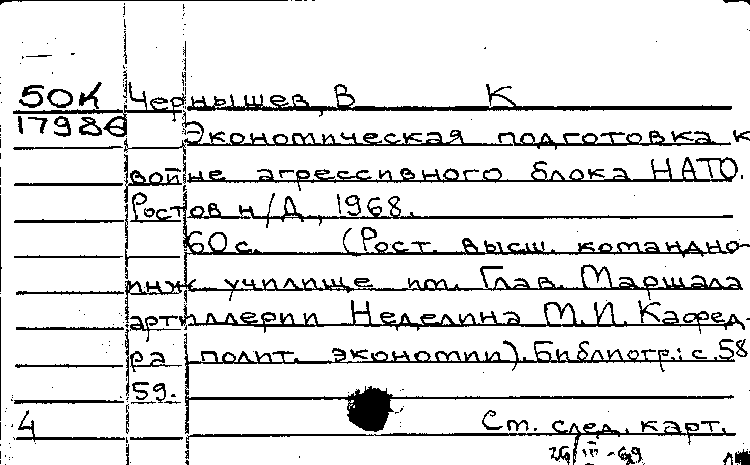 50К Чернышев, В К
17986 Экономическая подготовка к
войне агрессивного блока НАТО.
Ростов н/Д., 1968.
60 с. (Рост. высш. командно-
инж. училище им. Глав. Маршала
артиллерии Неделина М.И. Кафед-
ра полит. экономии). Библиогр.: с. 58
59.
4 Ст. след. карт.
26/III-69